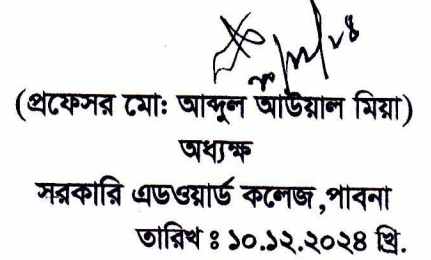 (প্রফেসর মো: আব্দুল আউয়াল মিয়া)
অধ্যক্ষ
সরকারি এডওয়ার্ড কলেজ ,পাবনা
তারিখ ঃ ১০.১২.২০২৪ খ্রি.